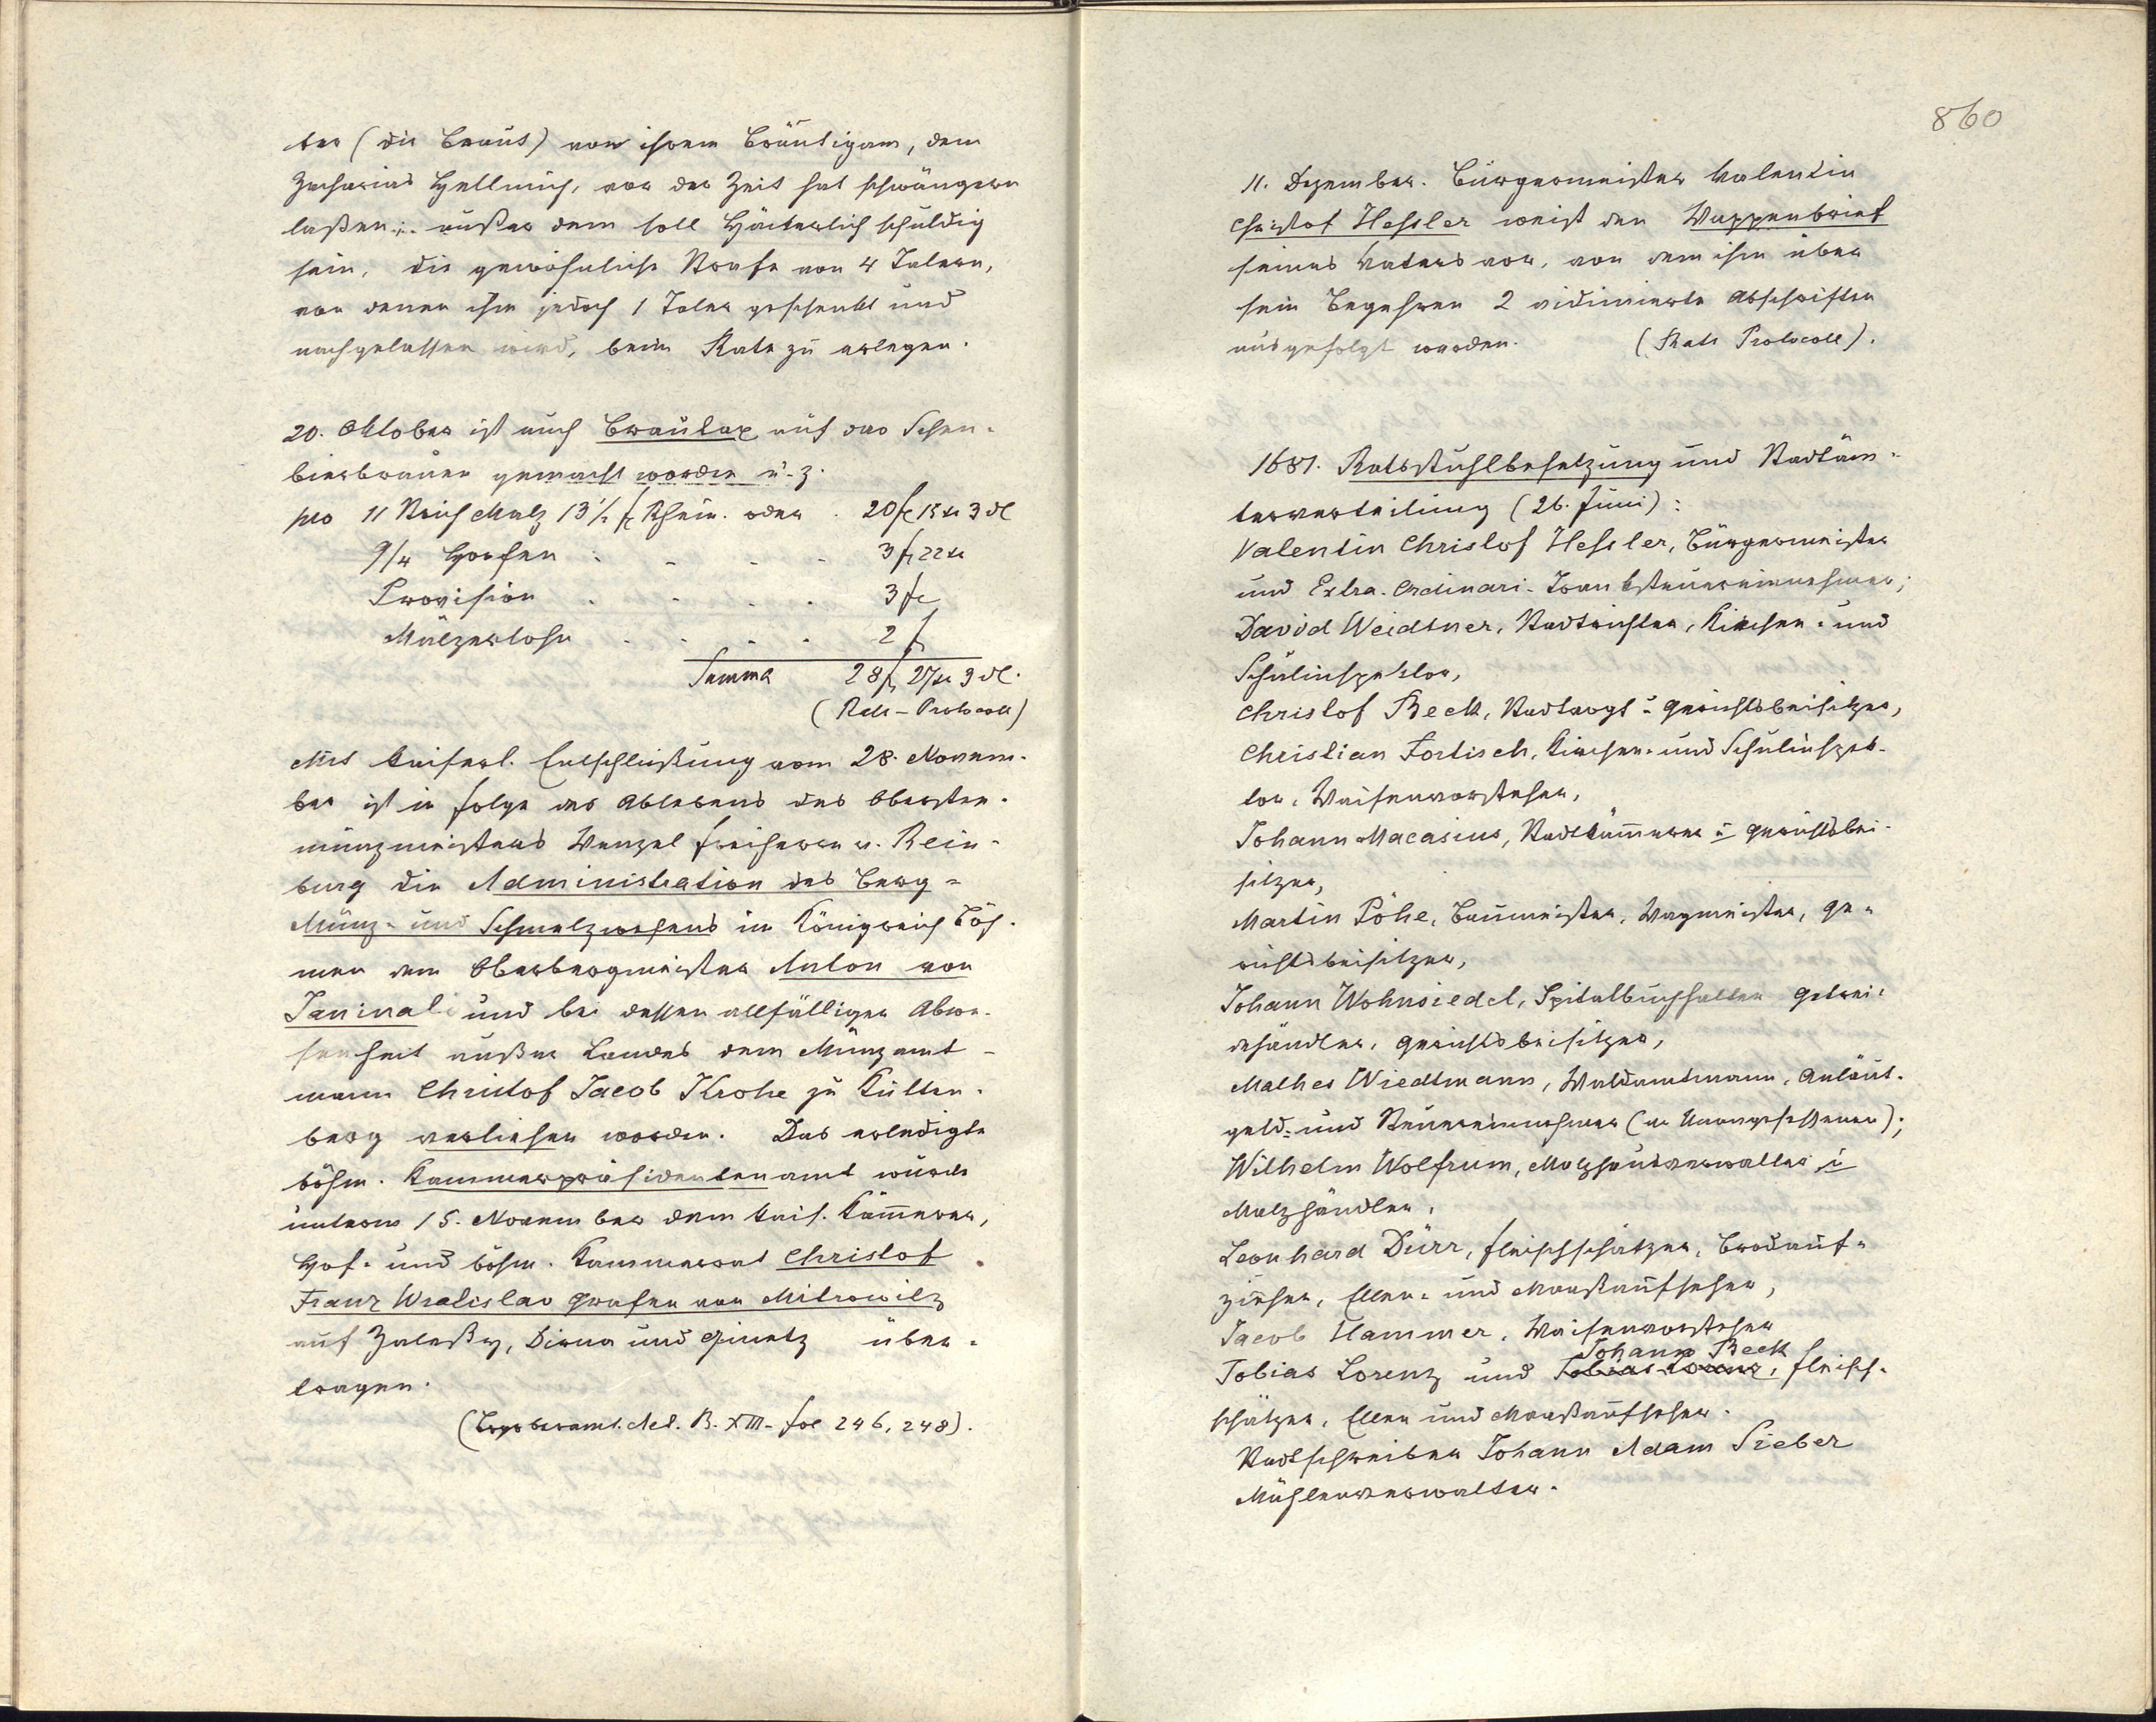 ter (die Braut) von ihrem Bräutigam, dem
Zacharias Hellmich, vor der Zeit hat schwängern
laßen; außer dem soll Häckerlich schuldig
sein, die gewöhnliche Strafe von 4 Talern,
von denen ihm jedoch 1 Taler geschenkt und
nachgelassen wird, beim Rate zu erlegen.
20. Oktober ist auch Brautax auf das
bierbrauen gemacht worden u. z.
pro 11 Strich Malz 13½ fl Rhein. oder . 20 fl 15 xr 3 dl
9/4 Hopfen . . . . 3 fl 22 xr
Provision . . . . 3 fl
Mälzerlohn . . . . 2 fl
Summa 28 fl 27 xr 3 dl.
(Rats-Protocoll)
Mit kaiserl. Entschließung vom 28. Novem-
ber ist in folge des Ablebens des Obersten-
münzmeisters Wenzel freiherrn v. Rein-
burg die Administration des Berg-
Münz- und Schmelzwesens im Königreich Böh-
men dem Oberbergmeister Anton von
Janinali und bei dessen allfälliger Abwe-
senheit außer Landes dem Münzamt-
mann Christof Jacob Krohe zu Kutten-
berg verliehen worden. Das erledigte
böhm. Kammerpräsidentenamt wurde
unterm 15. November dem kais. Kämmerer,
Hof- und böhm. Kammerrat Christof
Franz Wratislav Grafen von Mitrowitz
auf Zaleßy, Dirna und Ginetz über-
tragen.
( . Act. B. XIII. fol 246, 248).
860
11. Dezember. Bürgermeister Valentin
Christof Hessler weist den Wappenbrief
seines Vaters vor, von dem ihm über
sein Begehren 2 vidimierte Abschriften
ausgefolgt werden. (Rats Protocoll).
1681. Ratsstuhlbesetzung und Stadtäm-
terverteilung (26. Juni):
Valentin Christof Hessler, Bürgermeister
und Extra-Ordinari-Tranksteuereinnehmer;
David Weidtner, Stadtrichter, Kirchen- und
Schulinspektor,
Christof Beck, Stadtvogt u. Gerichtsbeisitzer,
Christian Fortisch, Kirchen- und Schulinspek-
tor, Waisenvorsteher,
Johann Macasius, Stadtkämmerer u. Gerichtsbei-
sitzer,
Martin Pöhe, Baumeister, Wagmeister, Ge-
richtsbeisitzer,
Johann Wohnsiedel, Spitalbuchhalter Getrei-
dehändler, Gerichtsbeisitzer,
Mathes Wiedtmann, Waldamtmann, Anläut-
geld- und Steuereinnehmer (der Unangesessenen);
Wilhelm Wolfrum, Malzhausverwalter u
Malzhändler,
Leonhard Dürr, fleischschätzer, Brodauf-
zieher, Ellen- und Maaßaufseher,
Jacob Hammer, Waisenvorsteher
Johann Beck
Tobias Lorenz und Tobias Lorenz, fleisch-
schätzer, Ellen und Maaßaufseher.
Stadtschreiber Johann Adam Sieber
Mühlenverwalter.